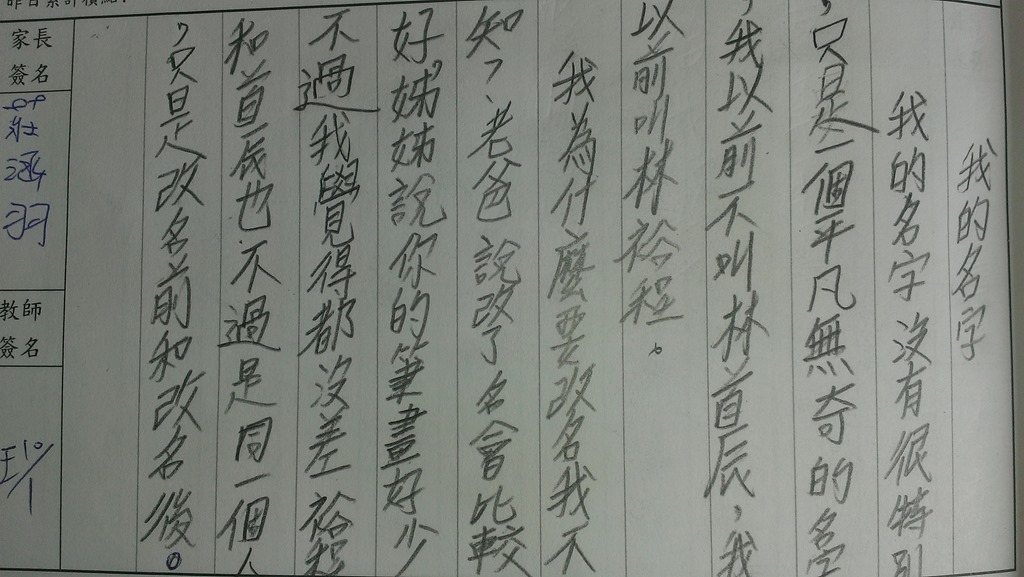 我的名字
我的名字沒有很特別
，只是一個平凡無奇的名字
，我以前不叫林首辰，我
以前叫林裕程。
我為什麼要改名我不
知，老爸說改了名會比較
好，姊姊說你的筆畫好少
不過我覺得都沒差裕程
和首辰也不過是同一個人
，只是改名前和改名後。
家長
簽名
教師
簽名
10/1